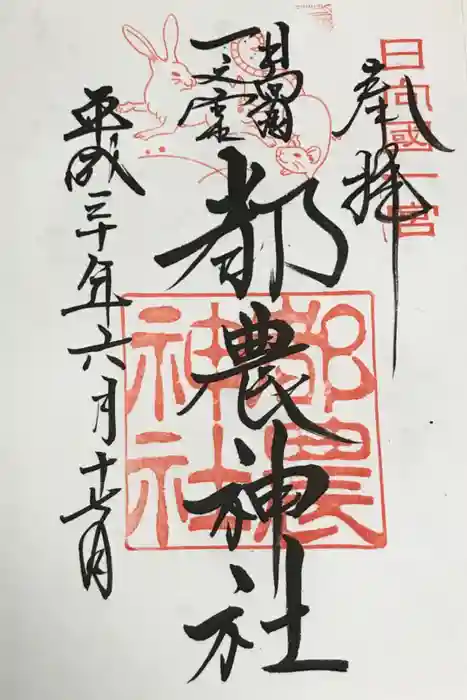 日向國一宮
奉拝
都農神社
都農神社
平成三十年六月十七日